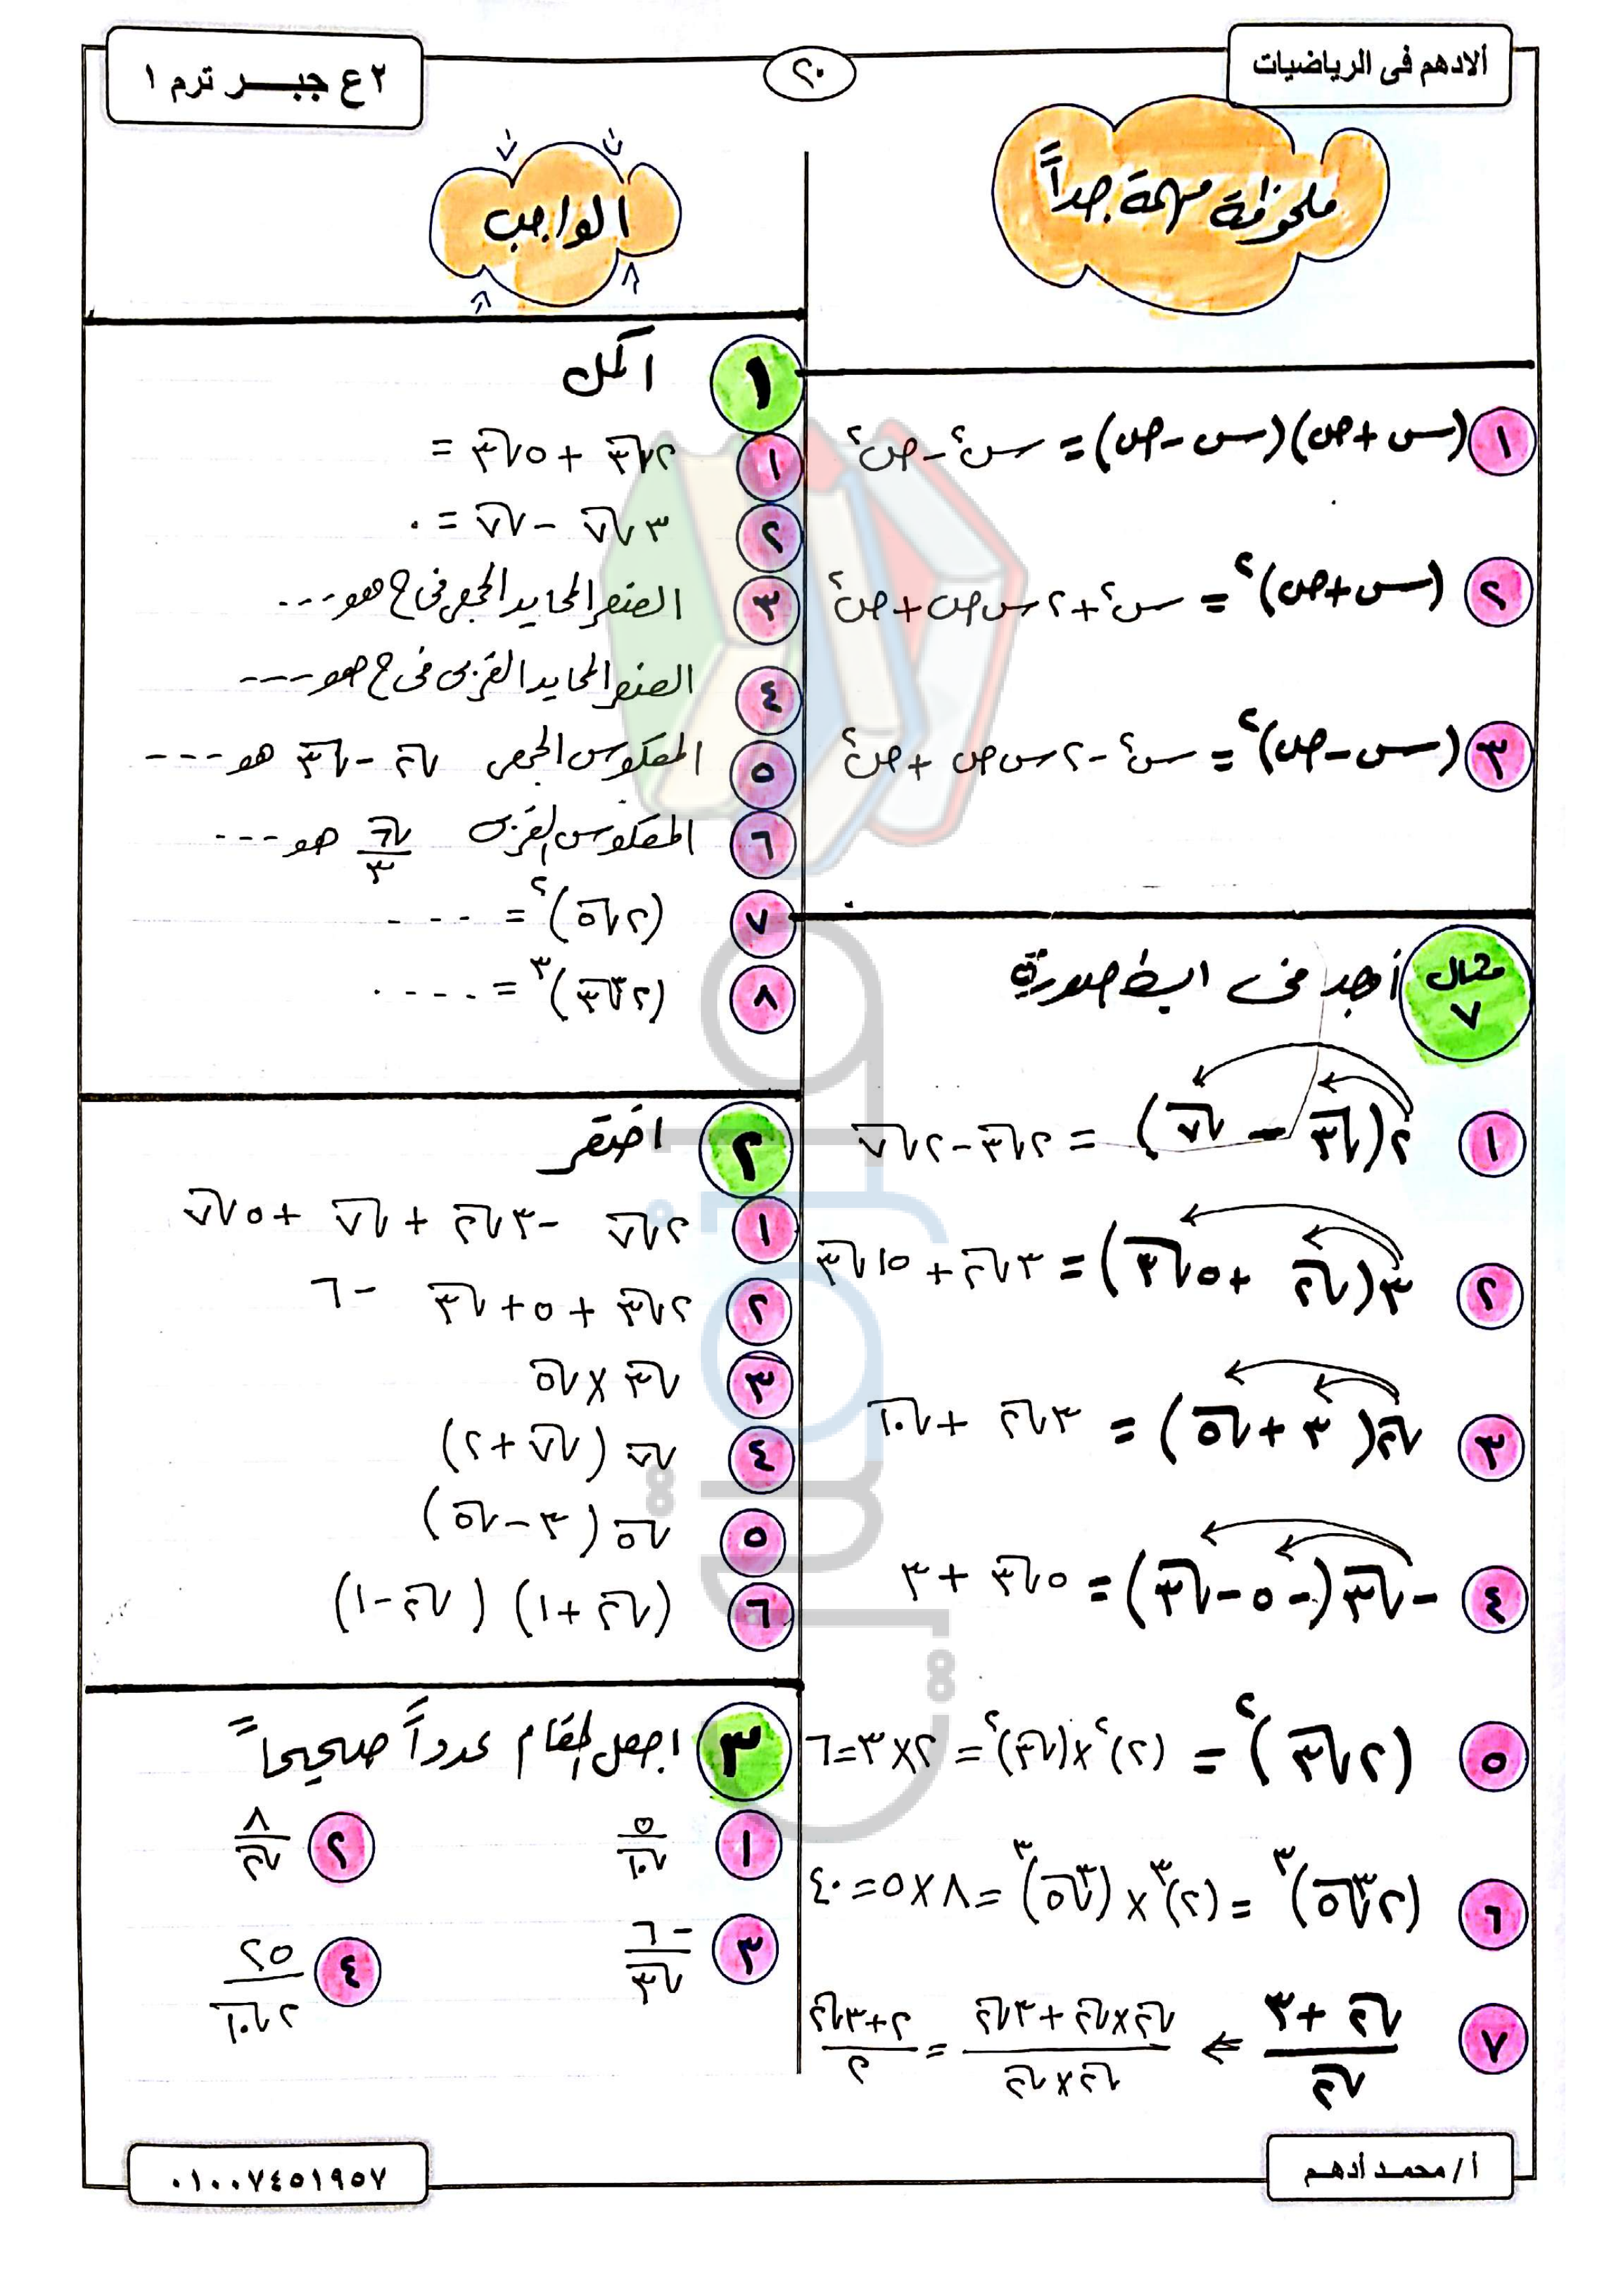 ألادهم فى الرياضيات
٢٠
٢ ع جبـــر ترم ١
ملحوظة مهمة جداً
١ (س + ص)(س - ص) = س٢ - ص٢
٢ (س + ص)٢ = س٢ + ٢ س ص + ص٢
٣ (س - ص)٢ = س٢ - ٢ س ص + ص٢
مثال ٧ أوجد فى ابسط صورة
١ ٢(√٣ - √٧) = ٢√٣ - ٢√٧
٢ ٣(√٢ + ٥√٣) = ٣√٢ + ١٥√٣
٣ √٢(٣ + √٥) = ٣√٢ + √١٠
٤ -√٣(-٥ - √٣) = ٥√٣ + ٣
٥ (٢√٣)٢ = (٢)٢ × (√٣)٢ = ٢ × ٣ = ٦
٦ (٢∛٥)٣ = (٢)٣ × (∛٥)٣ = ٨ × ٥ = ٤٠
٧ (√٢ + ٣)/√٢ ⇐ (√٢ × √٢ + ٣√٢)/(√٢ × √٢) = (٢ + ٣√٢)/٢
الواجب
١ اكمل
١ ٢√٣ + ٥√٣ =
٢ ٣√٧ - √٧ = .
٣ العنصر المحايد الجمعى فى ح هو ---
٤ العنصر المحايد الضربى فى ح هو ----
٥ المعكوس الجمعى √٢ - √٣ هو ----
٦ المعكوس الضربى √٦/٣ هو ---
٧ (٢√٥)٢ = - - -
٨ (٢∛٣)٣ = - - - .
٢ اختصر
١ ٢√٧ - ٣√٢ + √٧ + ٥√٧
٢ ٢√٣ + ٥ + √٣ - ٦
٣ √٣ × √٥
٤ √٧ (√٧ + ٢)
٥ √٥ (٣ - √٥)
٦ (√٢ + ١) (√٢ - ١)
٣ اجعل المقام عدداً صحيحاً
١ ٥/√١٠
٢ ٨/√٢
٣ -٦/√٣
٤ ٢٥/٢√١٠
أ / محمد أدهم
٠١٠٠٧٤٥١٩٥٧